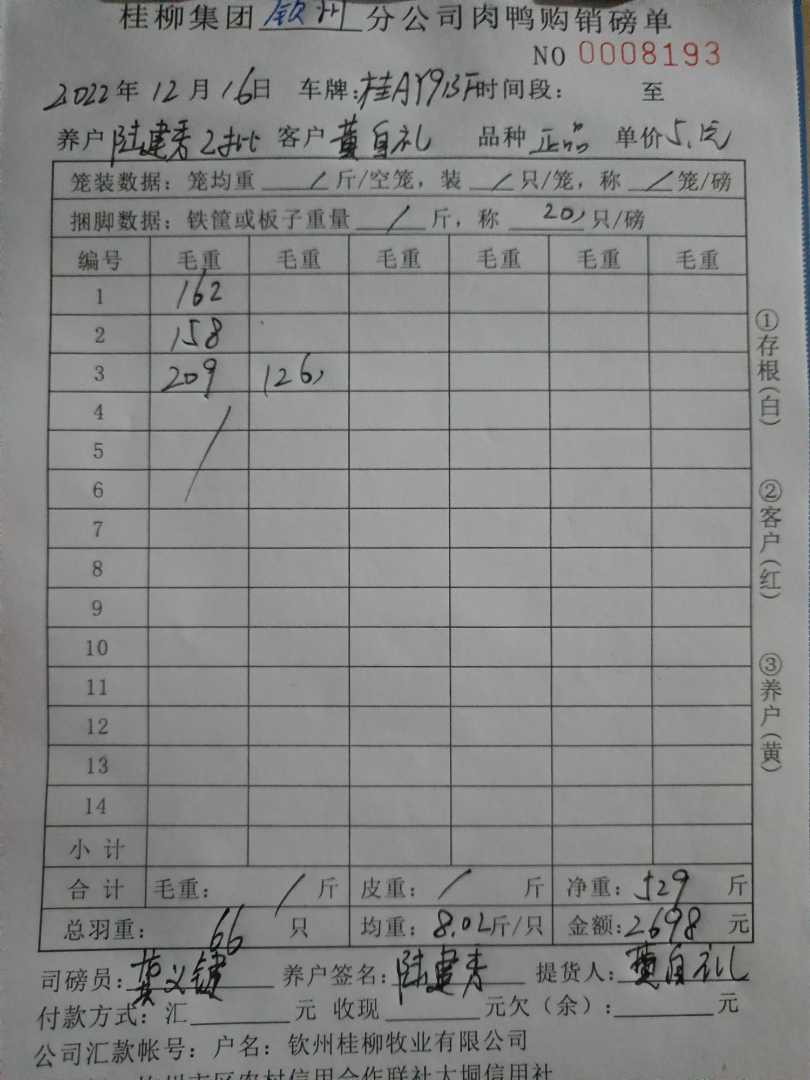 桂柳集团钦州分公司肉鸭购销磅单
NO 0008193
2022年12月16日 车牌:桂AY913F时间段: 至
养户陆建秀2批 客户黄自礼 品种正品 单价5.1元
笼装数据:笼均重/斤/空笼,装/只/笼,称/笼/磅
捆脚数据:铁筐或板子重量/斤,称20只/磅
编号 毛重 毛重 毛重 毛重 毛重 毛重
1 162
2 158
3 209 126
4 /
5
6
7
8
9
10
11
12
13
14
小计
合计 毛重: / 斤 皮重: / 斤 净重:529 斤
总羽重: 66 只 均重:8.02斤/只 金额:2698元
司磅员: 养户签名:陆建秀 提货人:黄自礼
付款方式:汇 元 收现 元欠(余): 元
公司汇款帐号:户名:钦州桂柳牧业有限公司
钦州市区农村信用合作联社大垌信用社
①存根(白)
②客户(红)
③养户(黄)